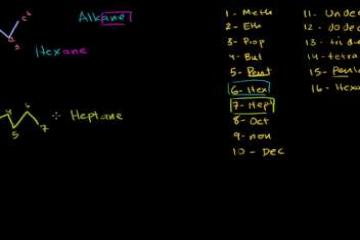 Alkane
Hexane
Heptane
4
5
6
7
1 - Meth
2 - Eth
3 - Prop
4 - But
5 - Pent
6 - Hex
7 - Hept
8 - Oct
9 - non
10 - Dec
11 - Undec
12 - dodec
13 - tridec
14 - tetra
15 - Penta
16 - Hexa